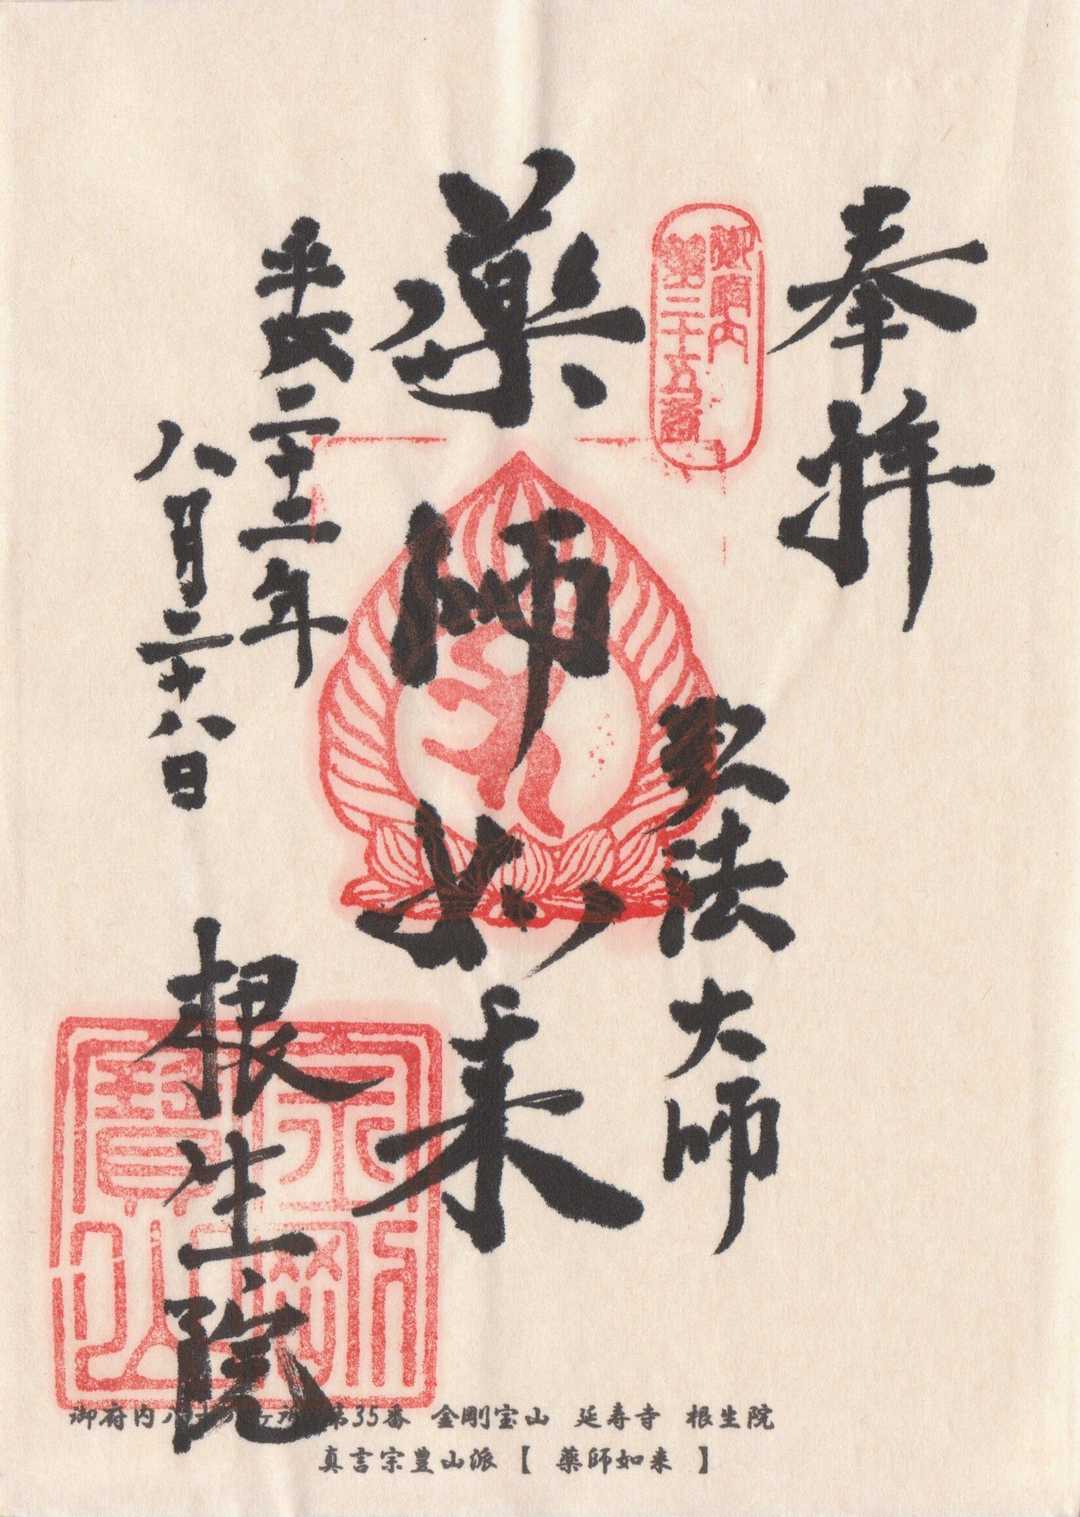 奉拝
御府内
第三十五番
弘法大師
薬師如来
平成二十三年
八月二十八日
根生院
金剛
寶山
御府内八十八ヶ所 第35番 金剛宝山 延寿寺 根生院
真言宗豊山派 【 薬師如来 】